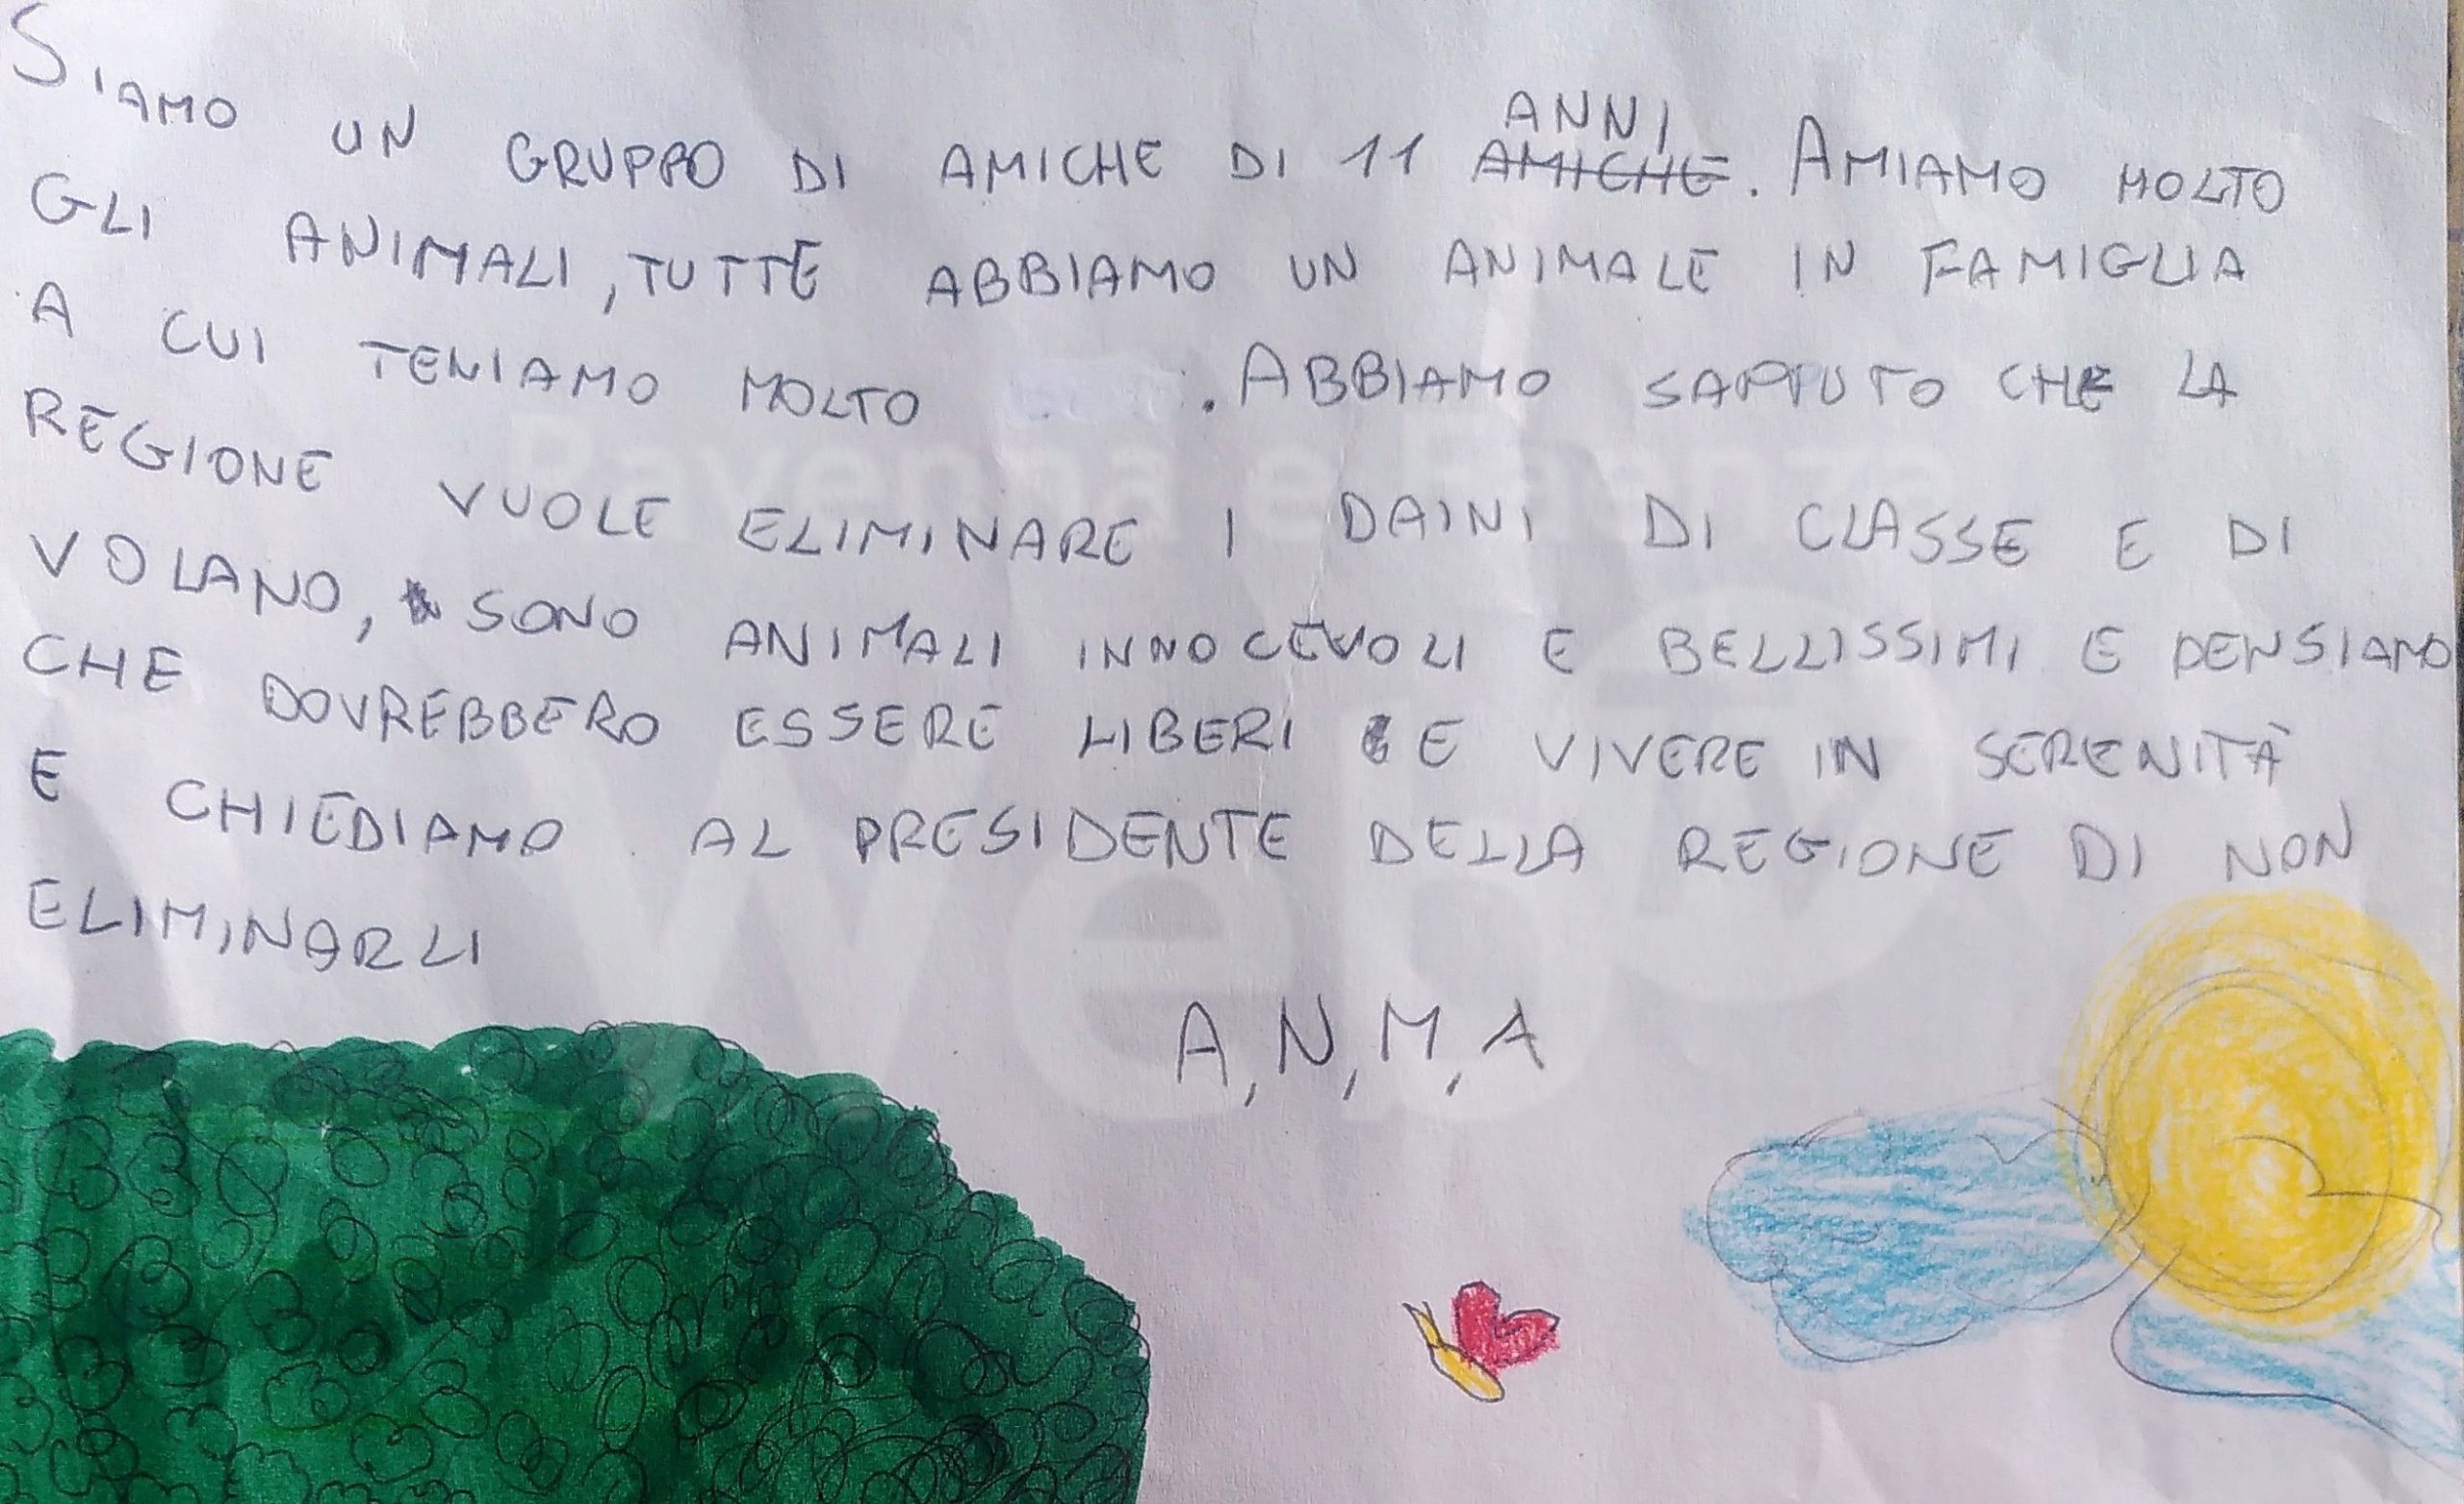 SIAMO UN GRUPPO DI AMICHE DI 11 ANNI AMICHE. AMIAMO MOLTO
GLI ANIMALI, TUTTE ABBIAMO UN ANIMALE IN FAMIGLIA
A CUI TENIAMO MOLTO . ABBIAMO SAPPUTO CHE LA
REGIONE VUOLE ELIMINARE I DAINI DI CLASSE E DI
VOLANO, SONO ANIMALI INNOCEVOLI E BELLISSIMI E PENSIAMO
CHE DOVREBBERO ESSERE LIBERI E VIVERE IN SERENITÀ
E CHIEDIAMO AL PRESIDENTE DELLA REGIONE DI NON
ELIMINARLI
A, N, M, A
Ravenna e Faenza
Web tv